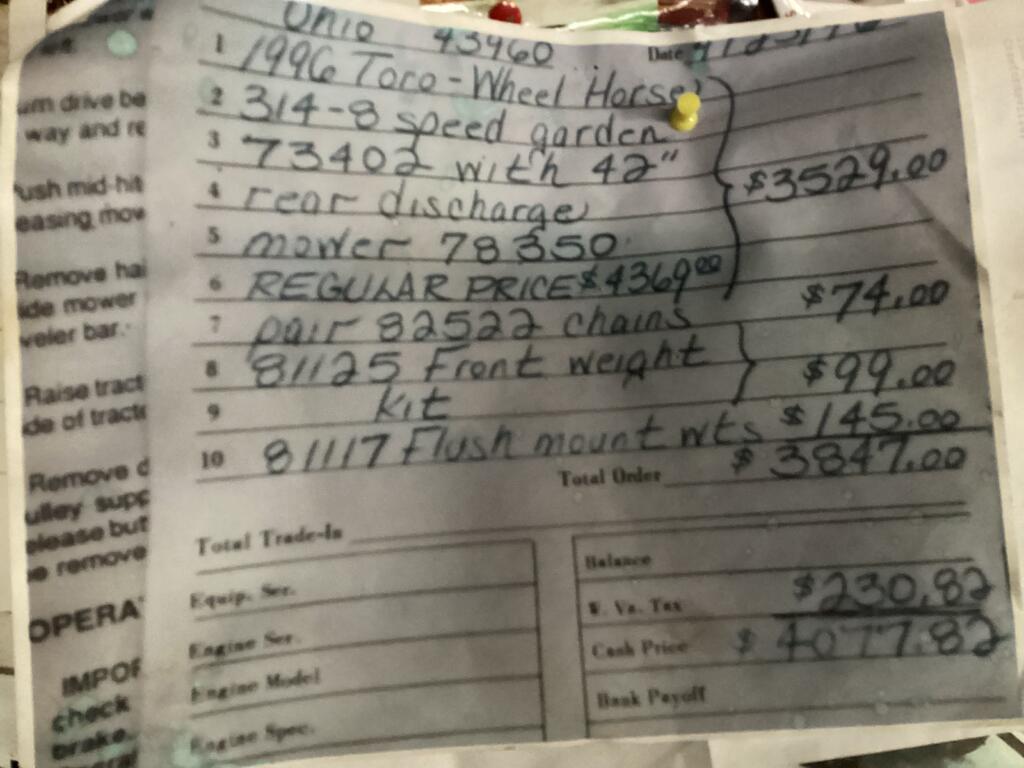 Ohio 43960 Date
um drive be
way and re
ush mid-hit
easing mow
Remove hai
ide mower
veler bar.
Raise tract
de of tract
Remove d
ulley supp
elease but
e remove
OPERA
IMPOR
check
brake.
1 1996 Toro-Wheel Horse
2 314-8 speed garden
3 73402 with 42" $3529.00
4 rear discharge
5 mower 78350
6 REGULAR PRICE $4369.00 $74.00
7 pair 82522 chains
8 81125 Front weight $99.00
9 kit
10 81117 Flush mount wts $145.00
Total Order $3847.00
Total Trade-In
Equip. Ser.
Engine Ser.
Engine Model
Engine Spec.
Balance
W. Va. Tax $230.82
Cash Price $4077.82
Bank Payoff